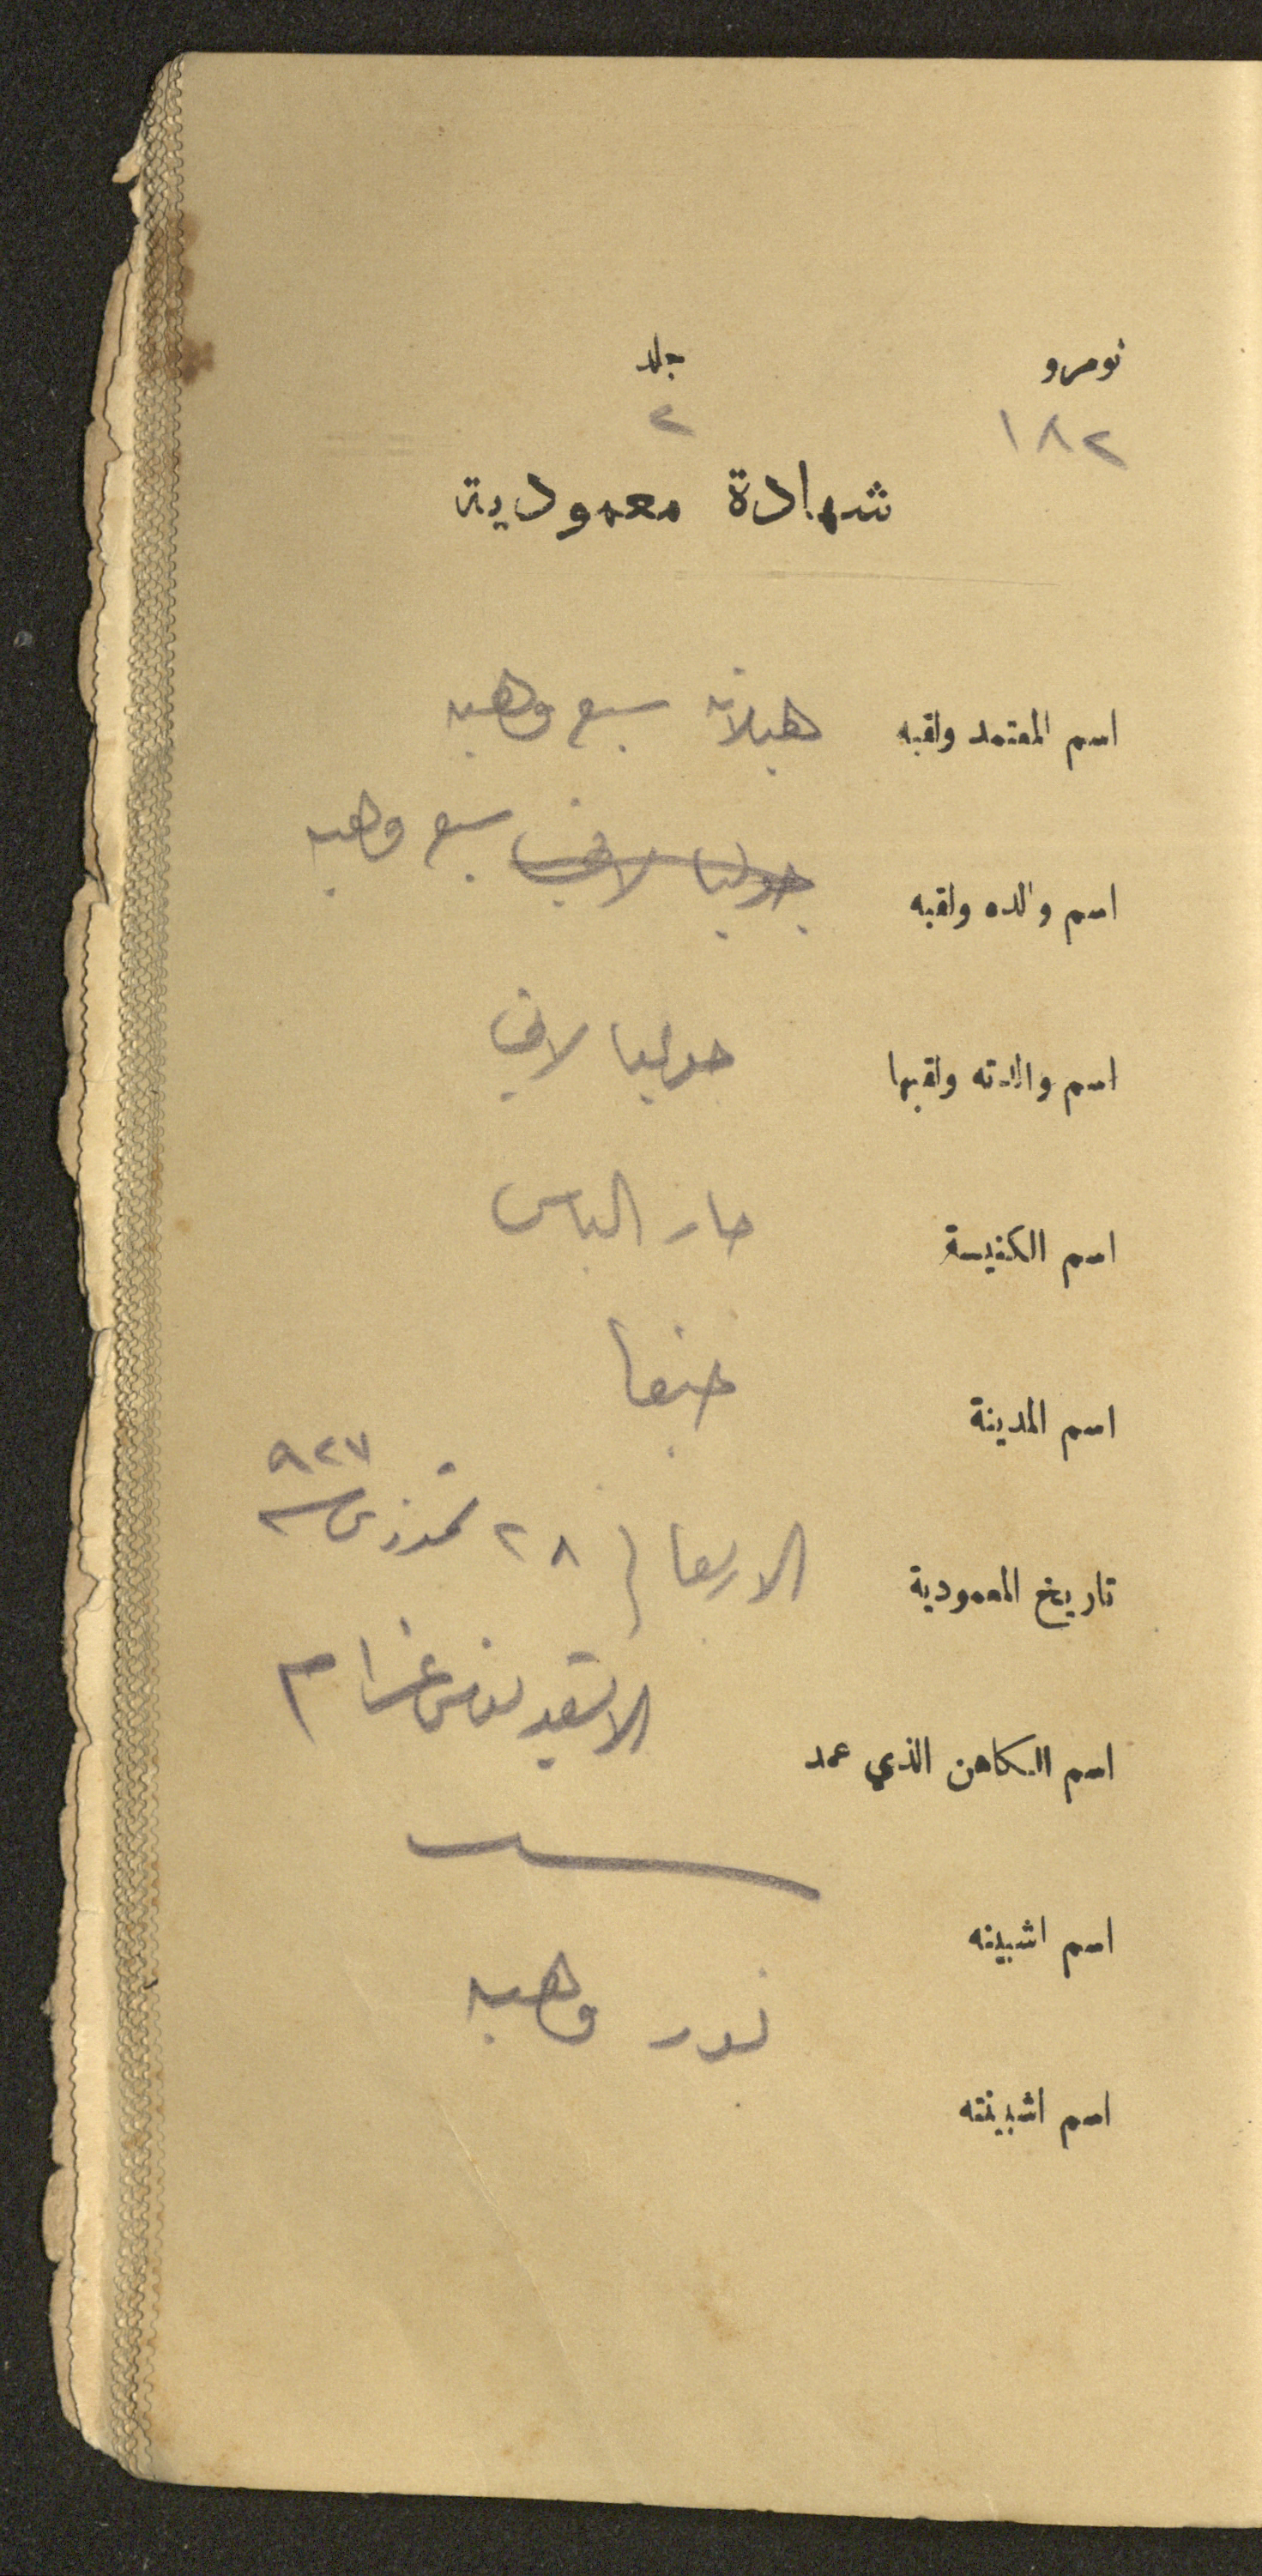 نومرو جلد
١٨٢ ٢
شهادة معمودية
اسم المعتمد ولقبه هيلانه سبع وهبه
اسم والده ولقبه جوليا لافي سبع وهبه
اسم والدته ولقبها جوليا لافي
اسم الكنيسة مار الياس
اسم المدينة حيفا
تاريخ المعمودية الاربعا ٢٨ تموز سنة ٩٢٧
اسم الكاهن الذي عمد غرام
اسم اشبينه
اسم اشبينته نور وهبه